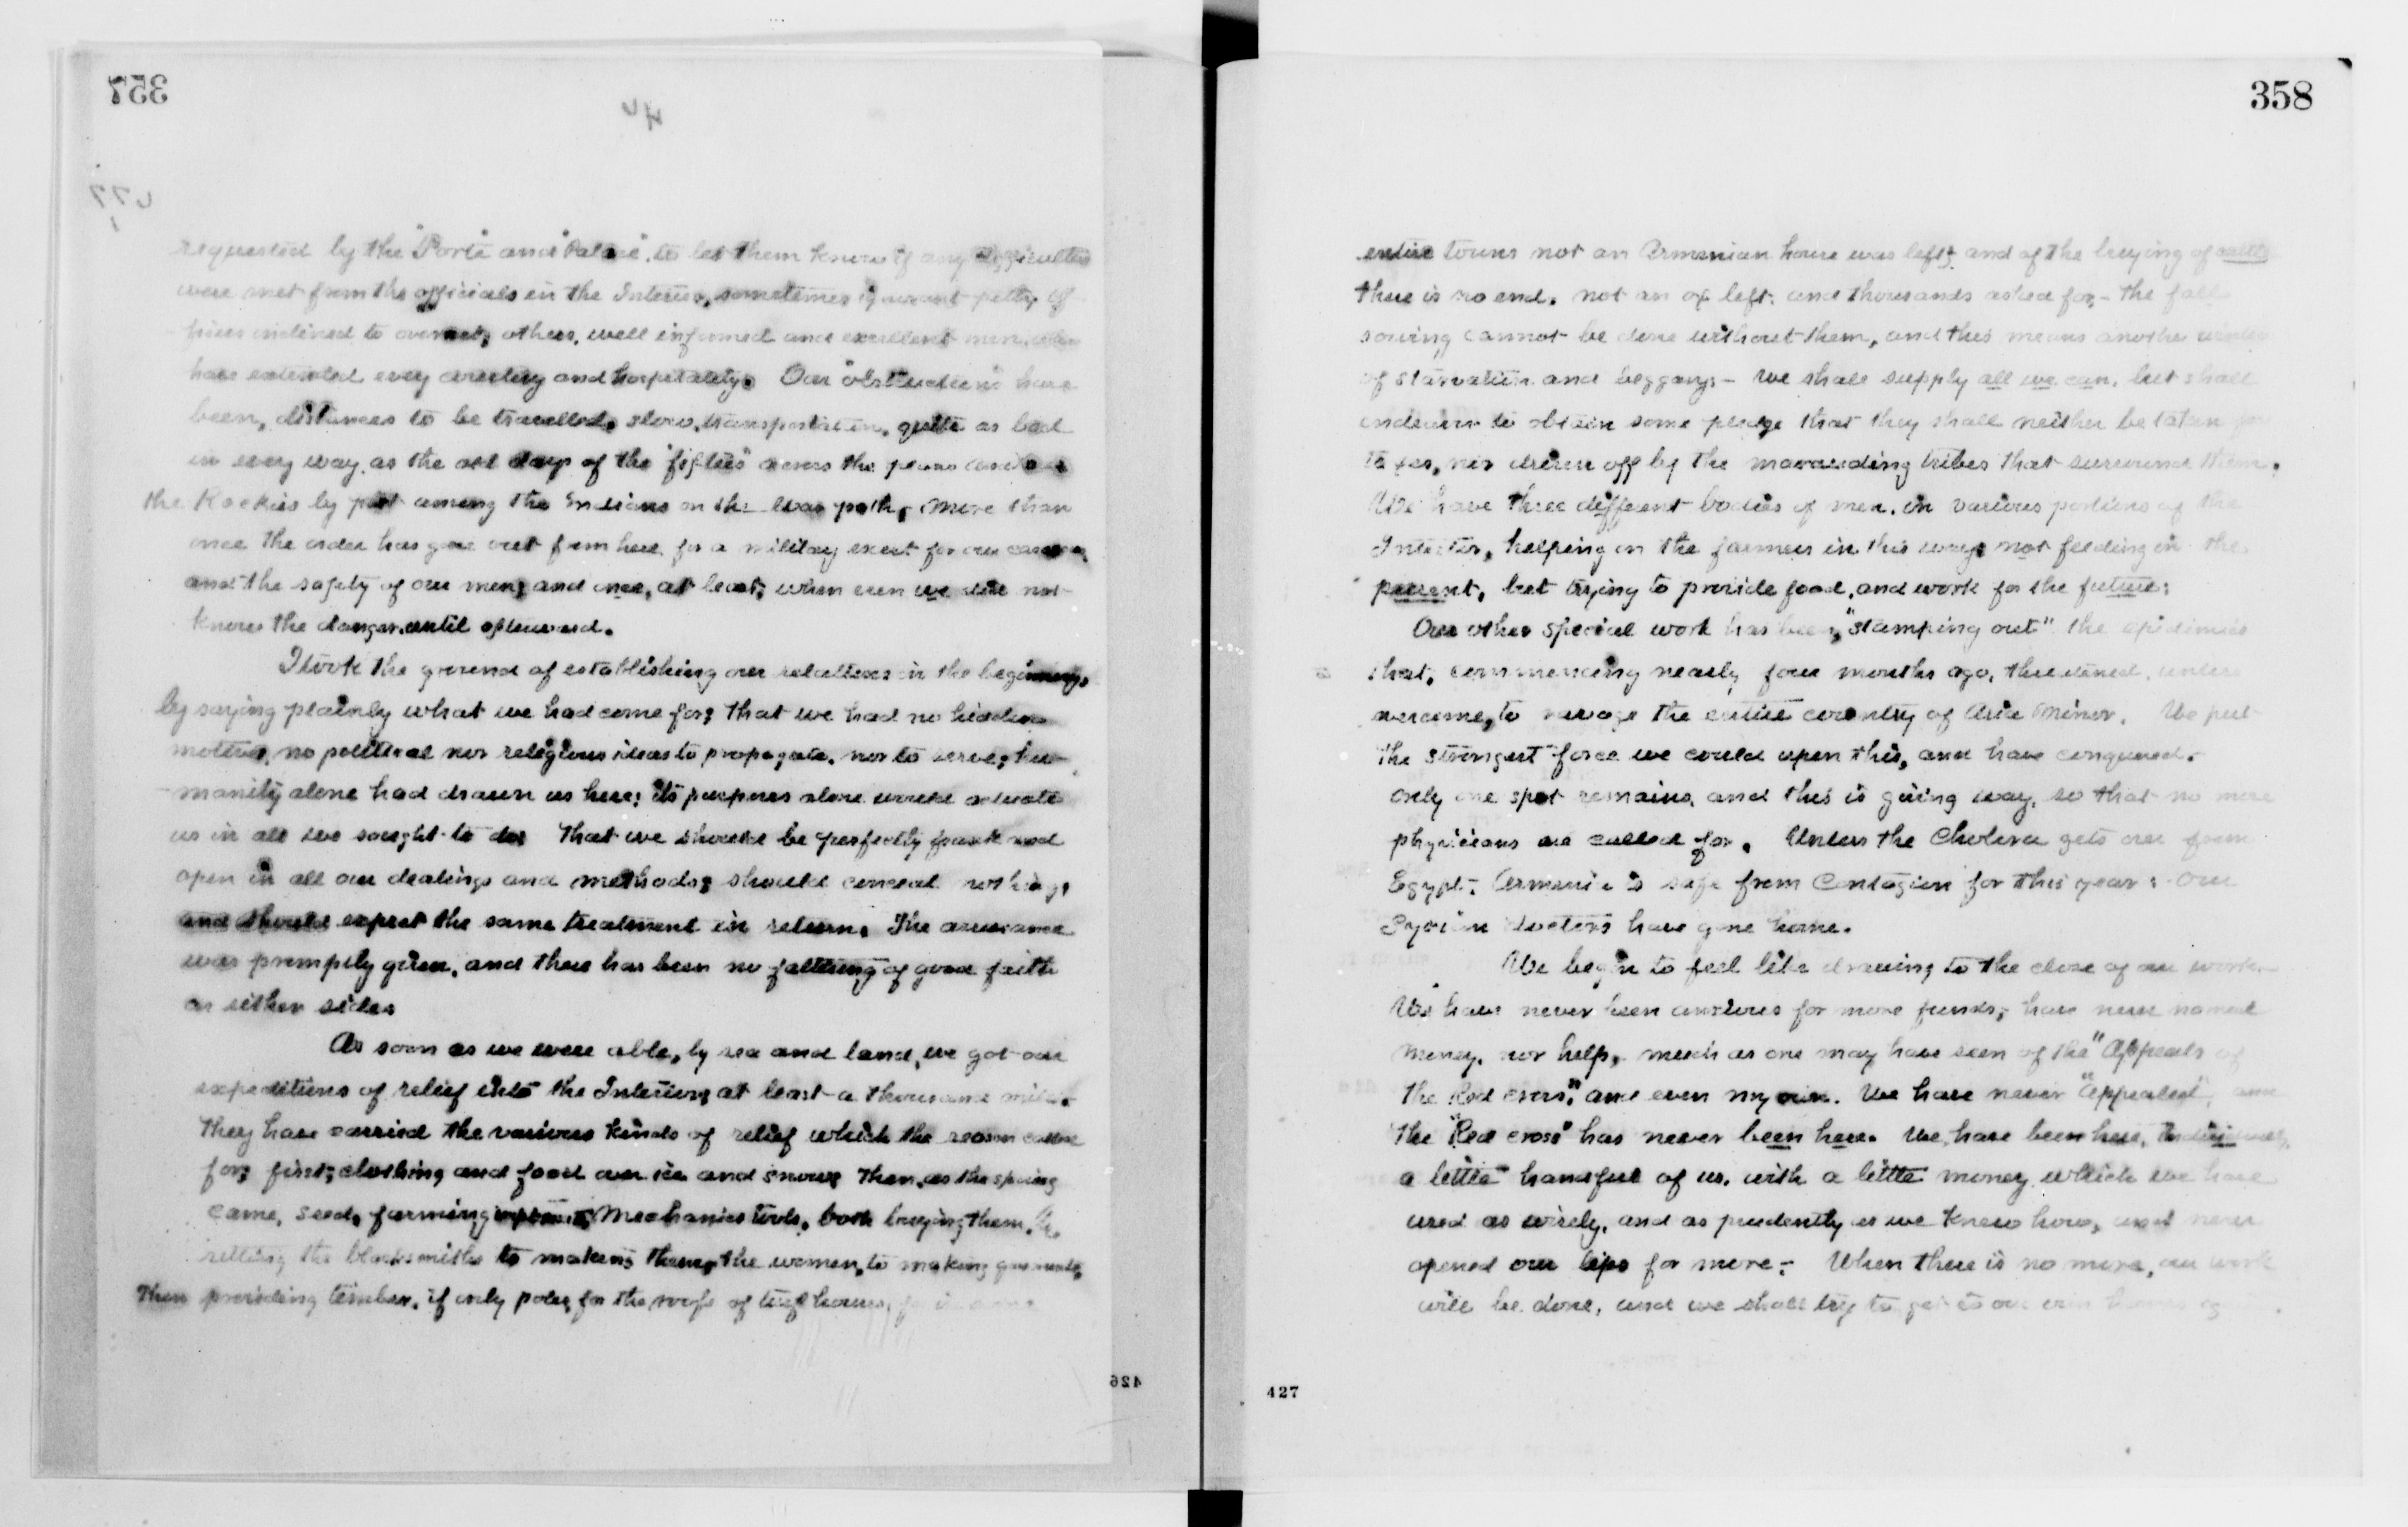 357
requested by the "Porte" and "Palace" to let them know if any difficulties
were met from the officials in the Interior, sometimes ignorant petty of-
ficers inclined to overact; others, well informed and excellent men, who
have extended every courtesy and hospitality. Our "obstructions" have
been, distances to be travelled, slow transportation, quite as bad
in every way, as the old days of the "fifties" across the plains and over
the Rockies by post among the Indians on the war path, more than
once the order has gone out from here for a military escort for our caravans
and the safety of our men; and once, at least, when even we did not
know the danger until afterward.
I took the ground of establishing our relations in the beginning,
by saying plainly what we had come for; that we had no hidden
motives, no political nor religious ideas to propagate, nor to serve; hu-
manity alone had drawn us here; its purposes alone would actuate
us in all we sought to do; that we should be perfectly frank and
open in all our dealings and methods; should conceal nothing,
and should expect the same treatment in return. The assurance
was promptly given, and there has been no faltering of good faith
on either side.
As soon as we were able, by sea and land, we got our
expeditions of relief into the Interior, at least a thousand miles.
They have carried the various kinds of relief which the season called
for; first, clothing and food over ice and snow; then, as the spring
came, seed, farming Mechanics tools, both buying them,
setting the blacksmiths to making them, the women, to making garments,
Then providing timber, if only poles, for the roofs of houses,
426
358
entire towns not an Armenian house was left; and of the buying of cattle
there is no end. not an ox left; and thousands asked for,- the fall
sowing cannot be done without them, and this means another winter
of starvation and beggary;- We shall supply all we can, but shall
endeavor to obtain some pledge that they shall neither be taken for
taxes, nor driven off by the marauding tribes that surround them.
We have three different bodies of men, in various portions of the
Interior, helping on the farmers in this way; not feeding in the
present, but trying to provide food, and work for the future;
Our other special work has been, "stamping out" the epidemics
that, commencing nearly four months ago, threatened, unless
overcome, to ravage the entire country of Asia Minor. We put
the strongest force we could upon this, and have conquered.
only one spot remains, and this is giving way, so that no more
physicians are called for. Unless the Cholera gets over from
Egypt, Armenia is safe from Contagion for this year; Our
Syrian doctors have gone home.
We begin to feel like drawing to the close of our work.
We have never been anxious for more funds; have never named
money, nor help, much as one may have seen of the "Appeals of
the Red Cross," and even my own. We have never "Appealed", and
the "Red Cross" has never been here. We have been here, Individually,
a little handful of us, with a little money which we have
used as wisely, and as prudently as we knew how, and never
opened our lips for more;- When there is no more, our work
will be done, and we shall try to get to our own homes
427